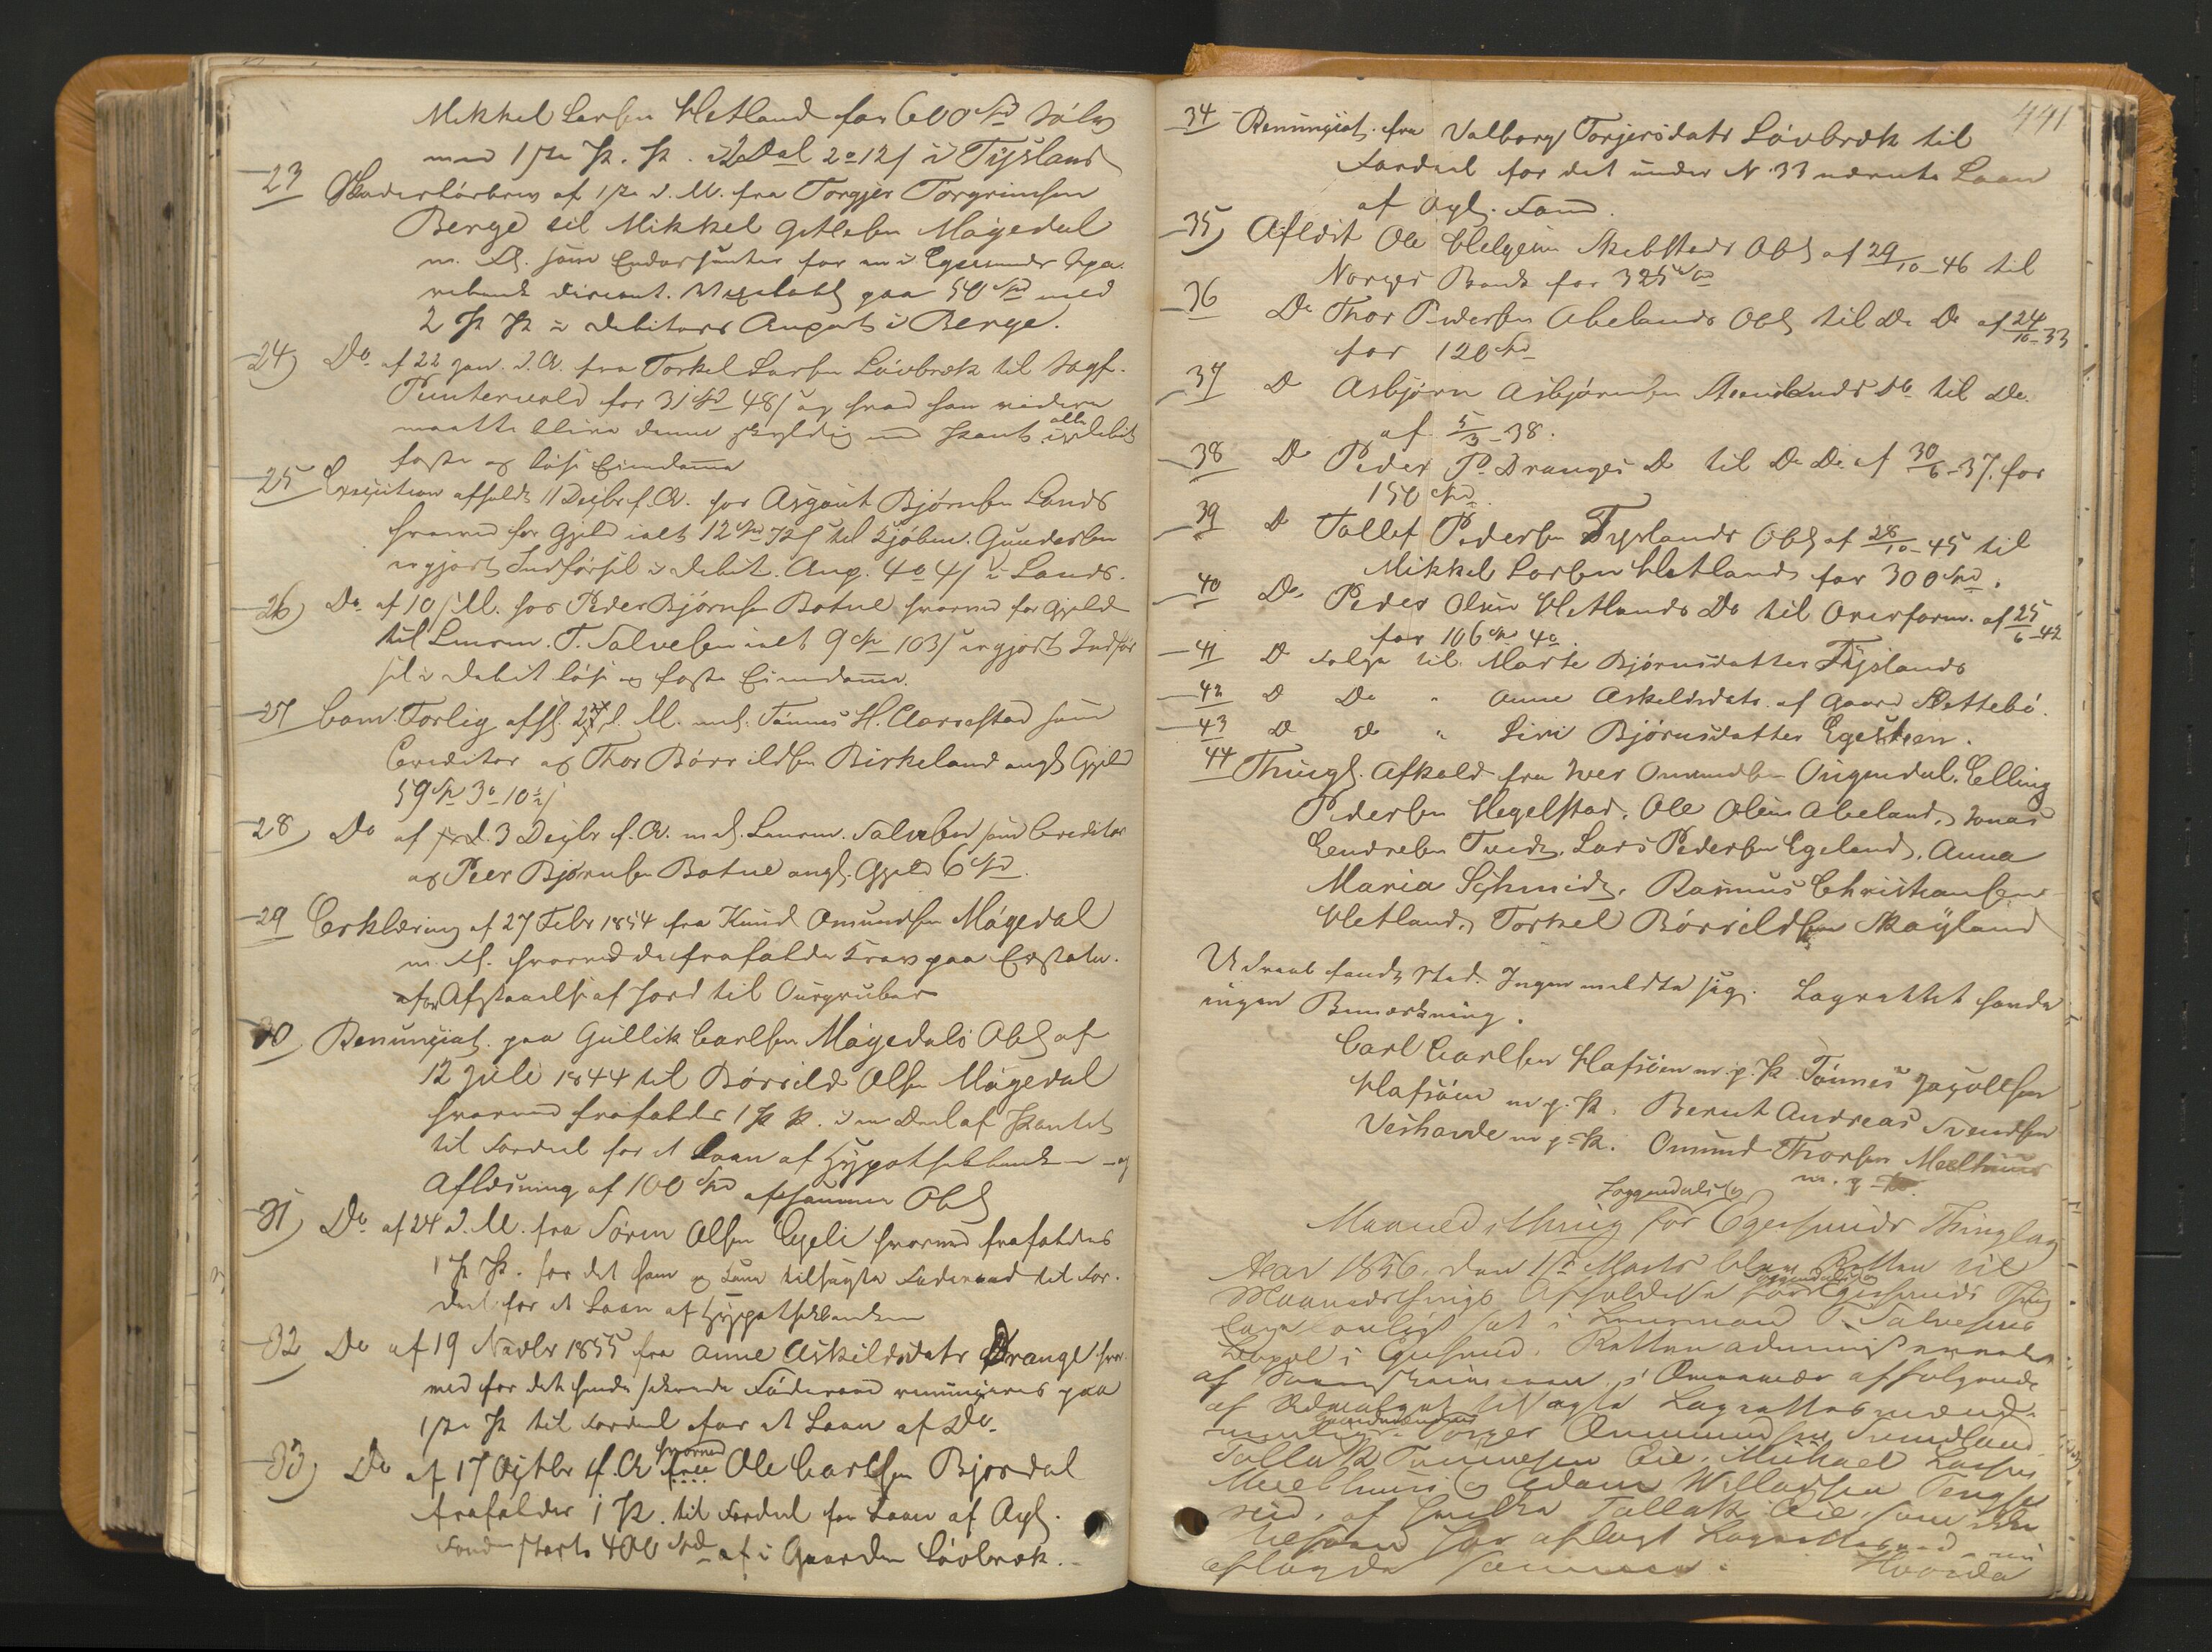 Mikkel Larsen Hetland for 600 Spd Sølv
med 1ste Pt. Pr. i 2 Dal 2 o 12 s i Tÿsland
23 Skadesløsbrev af 1ste d. M. fra Torgjer Torgrimsen
Berge til Mikkel Gitlesen Møgedal
m. fl. som Endossenter for en i Egersunds Spa-
rebank discont. Vexelobl paa 50 Spd med
2 Pt Pr i Debitors Anpart i Berge.
24) Do af 22 Jan. d. A. fra Torkel Larsen Løvbræk til Sagf.
Puntervold for 31 Spd 48 s og hvad han videre
maatte blive denne skyldig med Pant i alle Debits
faste og løse Eiendomme
25 Execution afholdt 11 Decbr f. A. hos Asgaut Bjørnsen Lands
hvorved for Gjeld ialt 12 Spd 72 s til Kjøbm. Gundersen
er gjort Indførsel i Debit. Anp. 4 o 4 s i Lands.
26) Do af 10 s. M. hos Peder Bjørnsen Botne hvorved for Gjeld
til Lensm. T. Salvesen ialt 9 Spd 103 s er gjort Indfør
sel i Debit løse og faste Eiendomme.
27 Com. Forlig afsl. 27 d. M. mel. Tønnes H. Aarrestad som
Creditor og Thor Børrildsen Birkeland angl Gjeld
59 Spd 3 o 10 ½ s
28) Do af 3 Decbr f. A. mel. Lensm. Salvesen som Creditor
og Peer Bjørnsen Botne angl. Gjeld 6 Spd.
29 Erklæring af 27 Febr 1854 fra Knud Omundsen Møgedal
m. fl. hvorved de frafalde Krav paa Erstatn.
for Afstaaelse af Jord til Ourgruber
30 Renunciat. paa Gullik Carlsen Møgedals Obl af
12 Juli 1844 til Børrild Olsen Møgedal
hvorved frafaldes 1 Pt Pr. i en Deel af Pantet
til Fordel for et Laan af Hÿpothekbanken – og
Aflæsning af 100 Spd af samme Obl
31) Do af 24 d. M. fra Søren Olsen Egeli hvorved frafaldes
1 Pt Pr. for det ham og Kone tilsagte Føderaad til For-
del for et Laan af Hÿpothekbanken
32 Do af 19 Novbr 1855 fra Anne Askildsdatr Drange hvor-
med for det hende sikrede Føderaad renunceres paa
1ste Pt til Fordel for et Laan af Do.
33) Do af 17 Octbr f. A hvorved Ole Carlsen Bjordal
frafalder 1 Pr. til Fordel for Laan af Opl.
Fondet stort 400 Spd af i Gaarden Løvbræk.
441
34 Renunciat. fra Valborg Torjersdatr Løvbræk til
Fordeel for det under N. 33 nævnte Laan
af Opl. Fond.
35) Aflæst Ole Helgesen Skibsteds Obl af 29/10-46 til
Norges Bank for 325 Spd
36 Do Thor Pedersen Abelands Obl til Do Do af 24/10-33
for 120 Spd
37 D Asbjørn Asbjørnsen Aamlands Do til Do.
af 5/3-38.
38 D Peder P. Dranges D til Do Do. af 30/6-37. for
150 Spd.
39 D Tollef Pedersen Tyslands Obl af 28/10-45 til
Mikkel Larsen Hetland for 300 Spd.
40 Do Peder Olsen Hetlands Do til Overform. af 25/6-42
for 106 Spd 4 o.
41 D Ifølge til Marte Bjørnsdatter Tÿslands
42 D Do " Anne Askeldsdatr. af Gaard Slettebø.
43 D D " Siri Bjørnsdatter Egesteen.
44 Thingl. Afkald fra Iver Omundsen Ougendal, Elling
Pedersen Hegelstad, Ole Olsen Abeland, Jonas
Eendresen Tveden, Lars Pedersen Egeland, Anna
Maria Schmidt, Rasmus Christiansen
Hetland, Torkel Børrildsen Skaÿland
Udraab fandt Sted. Ingen meldte sig. Lagrettet havde
ingen Bemærkning.
Carl Carlsen Hafsøen m. p. P. Tønnes Jacobsen
Hafsøen m. p. P. Bernt Andreas Svendsen
Veshovde m. p. P. Omund Thorsen Meelhuus
m. p. P.
Soggendals og
Maanedsthing for Egersunds Thinglag
Aar 1856. den 1ste Marts blev Retten til
Soggendals og
Maanedsthings Afholdelse for Egersunds Thing
lag ordinært sat i Lensmand T. Salvesens
Lokal i Egersund. Retten administreredes
af Sorenskriveren, i Overvær af følgende
af Ordenen tilsagte Lagrettesmænd.
Gaardmændene Omund Svendland
Tollak Tønnesen Eie, Michael Larsen
Meelhuus og Adam Willadsen Tengs
eid, af hvilke Tollak Eie, som ikke
tilforn har aflagt Lagretteseed nu
aflagde samme. Hvorda